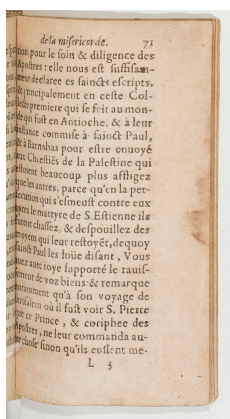 de la misericorde. 73
pour le soin & diligence des
Apostres : elle nous est suffisam-
ment declaree es saincts escripts,
& principalement en ceste Col-
lecte premiere qui se feit au mon-
de qui fust en Antioche, & à leur
instance commise à sainct Paul,
& à Barnabas pour estre enuoyé
aux Chrestiés de la Palestine qui
estoient beaucoup plus affligez
que les autres, parce qu'en la per-
secution qui s'esmeust contre eux
apres le martyre de S. Estienne ils
furent chassez, & despouillez des
moyens qui leur restoyét, dequoy
sainct Paul les loüe disant, Vous
auez auec ioye supporté le rauis-
sement de voz biens: & remarque
notamment qu'à son voyage de
Ierusalem où il fust voir S. Pierre
que ce Prince, & coriphee des
Apostres, ne leur commanda au-
tre chose sinon qu'ils eussent me-
L 3